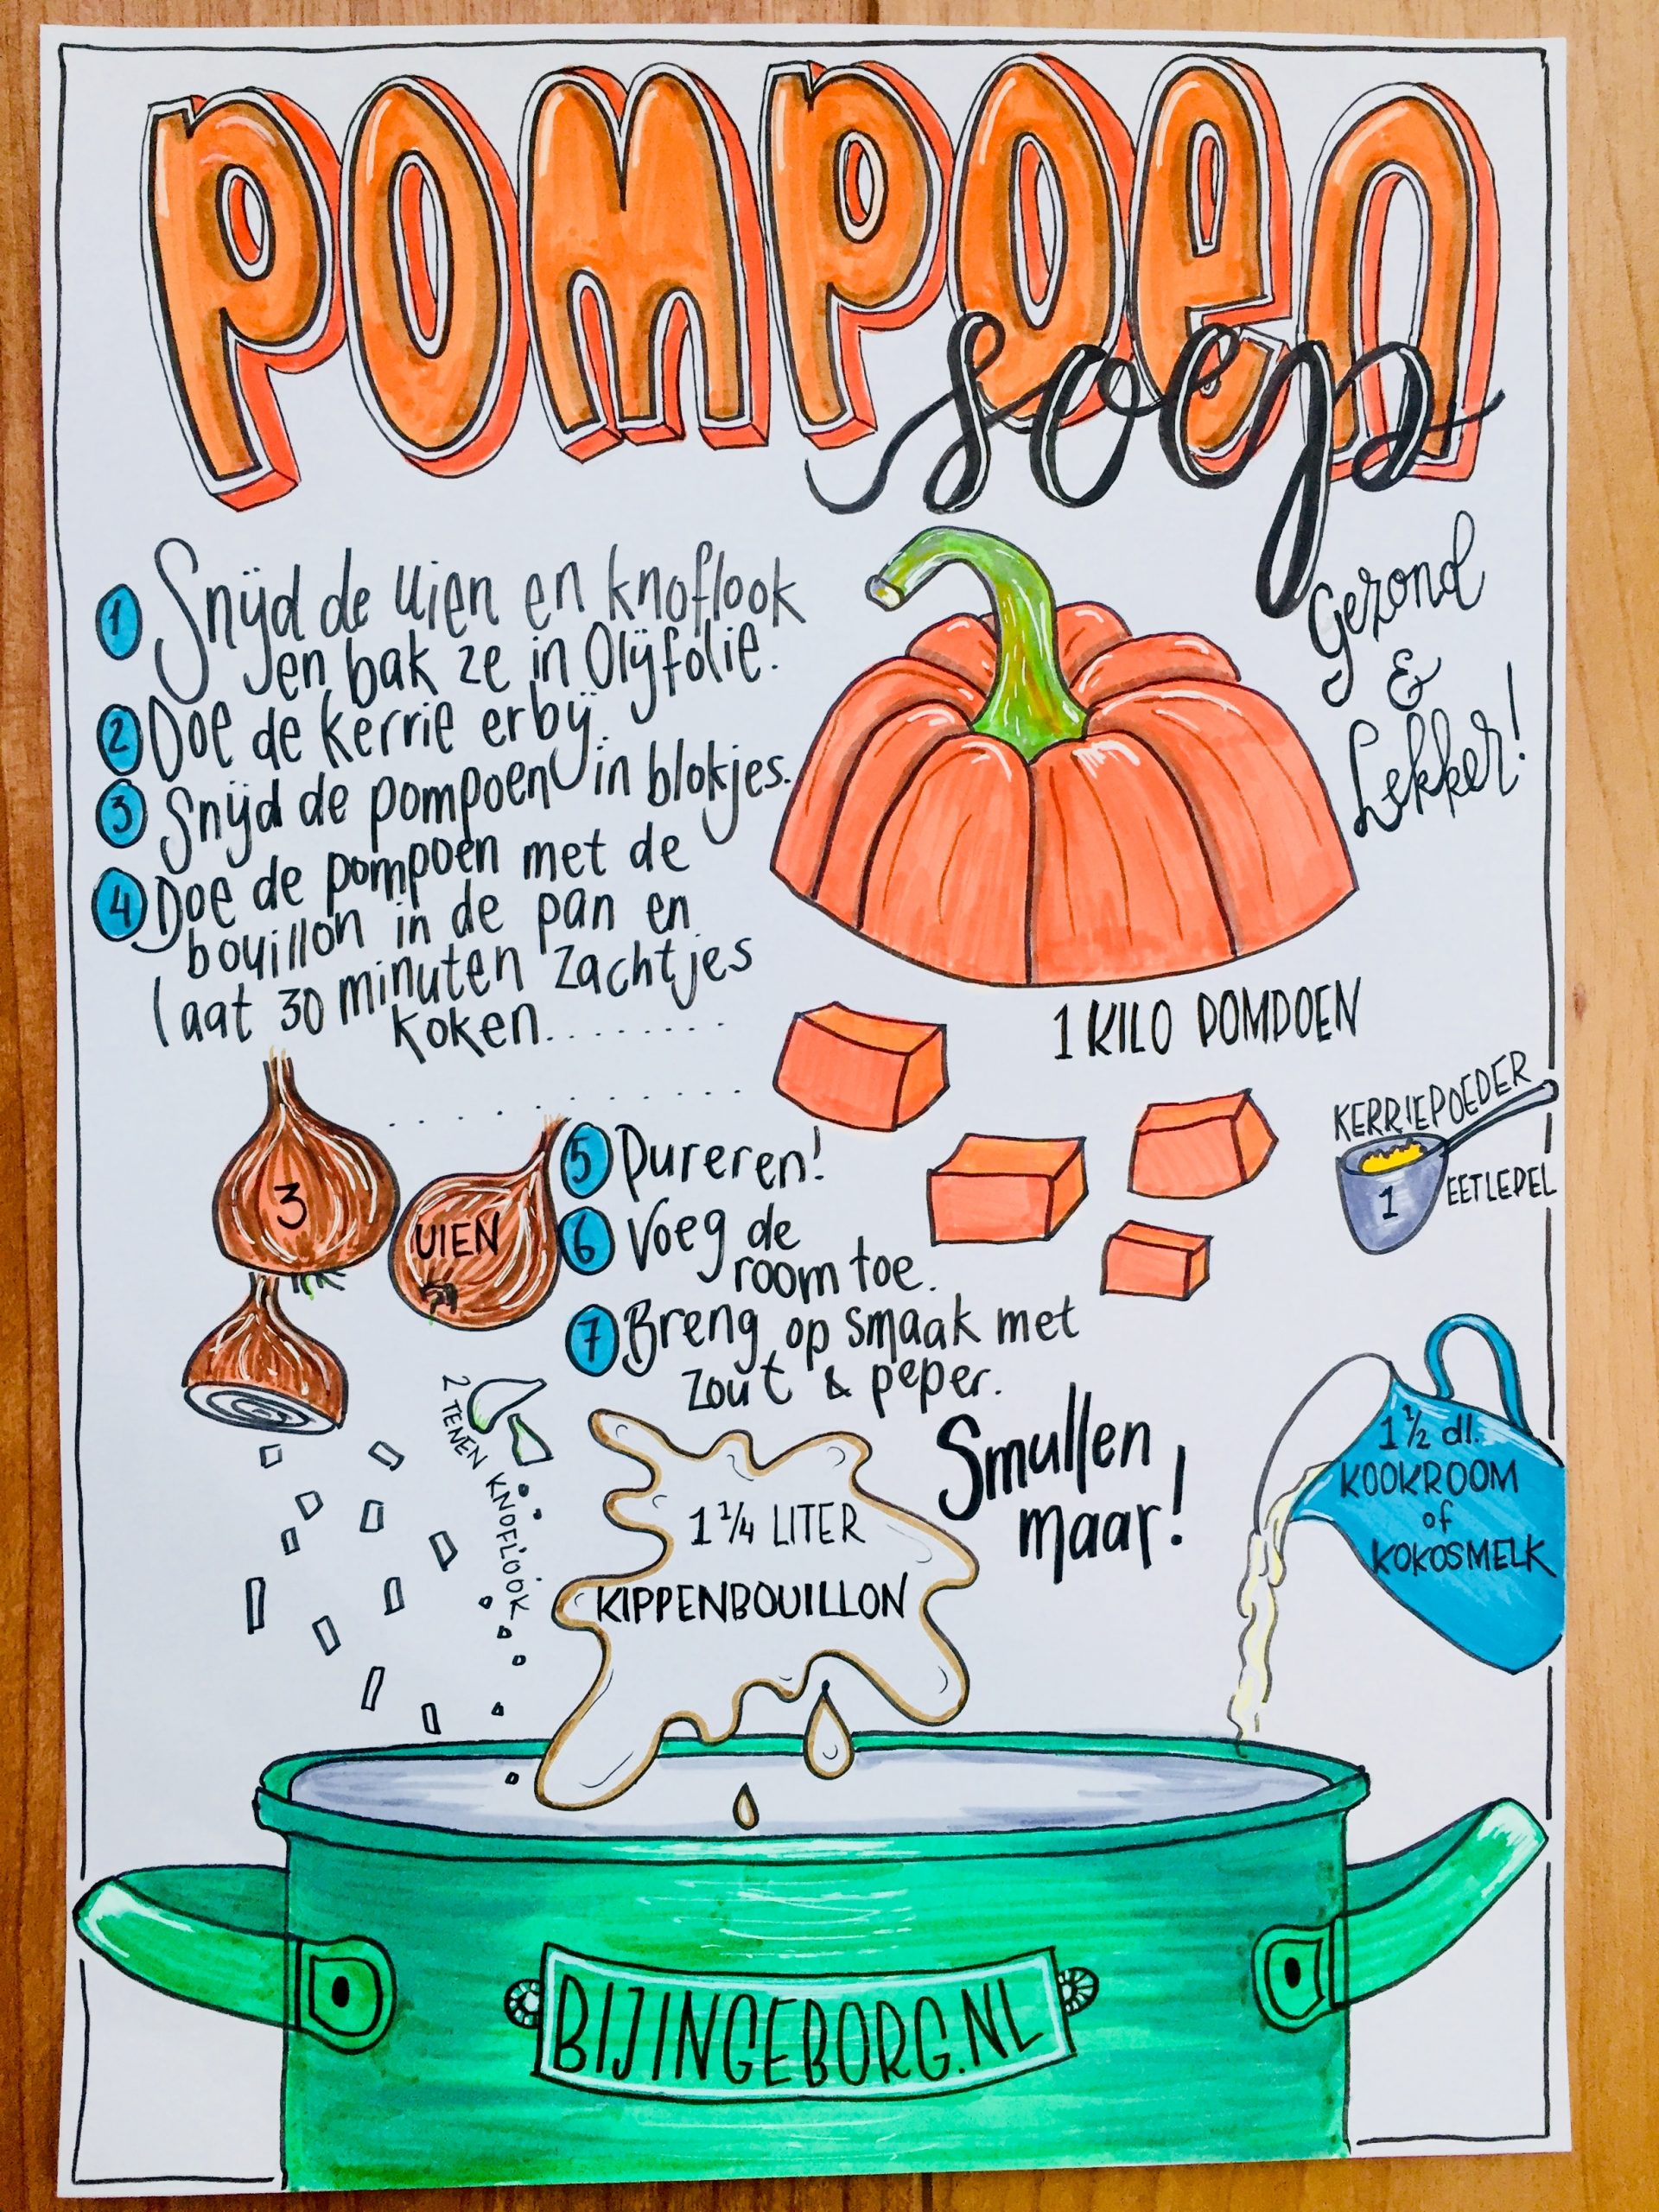 POMPOEN
soep
Gezond
&
Lekker!
1 Snijd de uien en knoflook
en bak ze in Olijfolie.
2 Doe de kerrie erbij.
3 Snijd de pompoen in blokjes.
4 Doe de pompoen met de
bouillon in de pan en
laat 30 minuten zachtjes
koken........
..........
1 KILO POMPOEN
KERRIEPOEDER
1 EETLEPEL
3
UIEN
5 Pureren!
6 Voeg de
room toe.
7 Breng op smaak met
zout & peper.
2 TENEN KNOFLOOK
Smullen
maar!
1 1/4 LITER
KIPPENBOUILLON
1 1/2 dl.
KOOKROOM
of
KOKOSMELK
BIJINGEBORG.NL